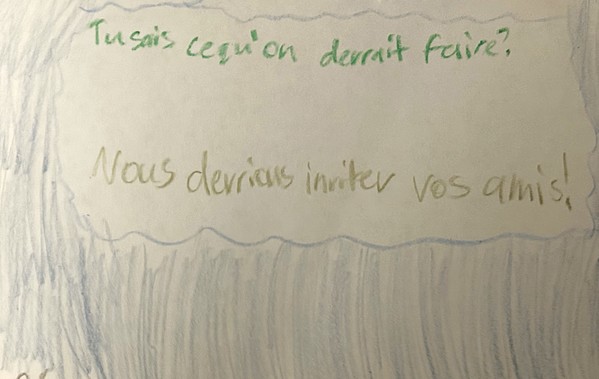 Tu sais ce qu'on devrait faire?
Nous devrions inviter vos amis!